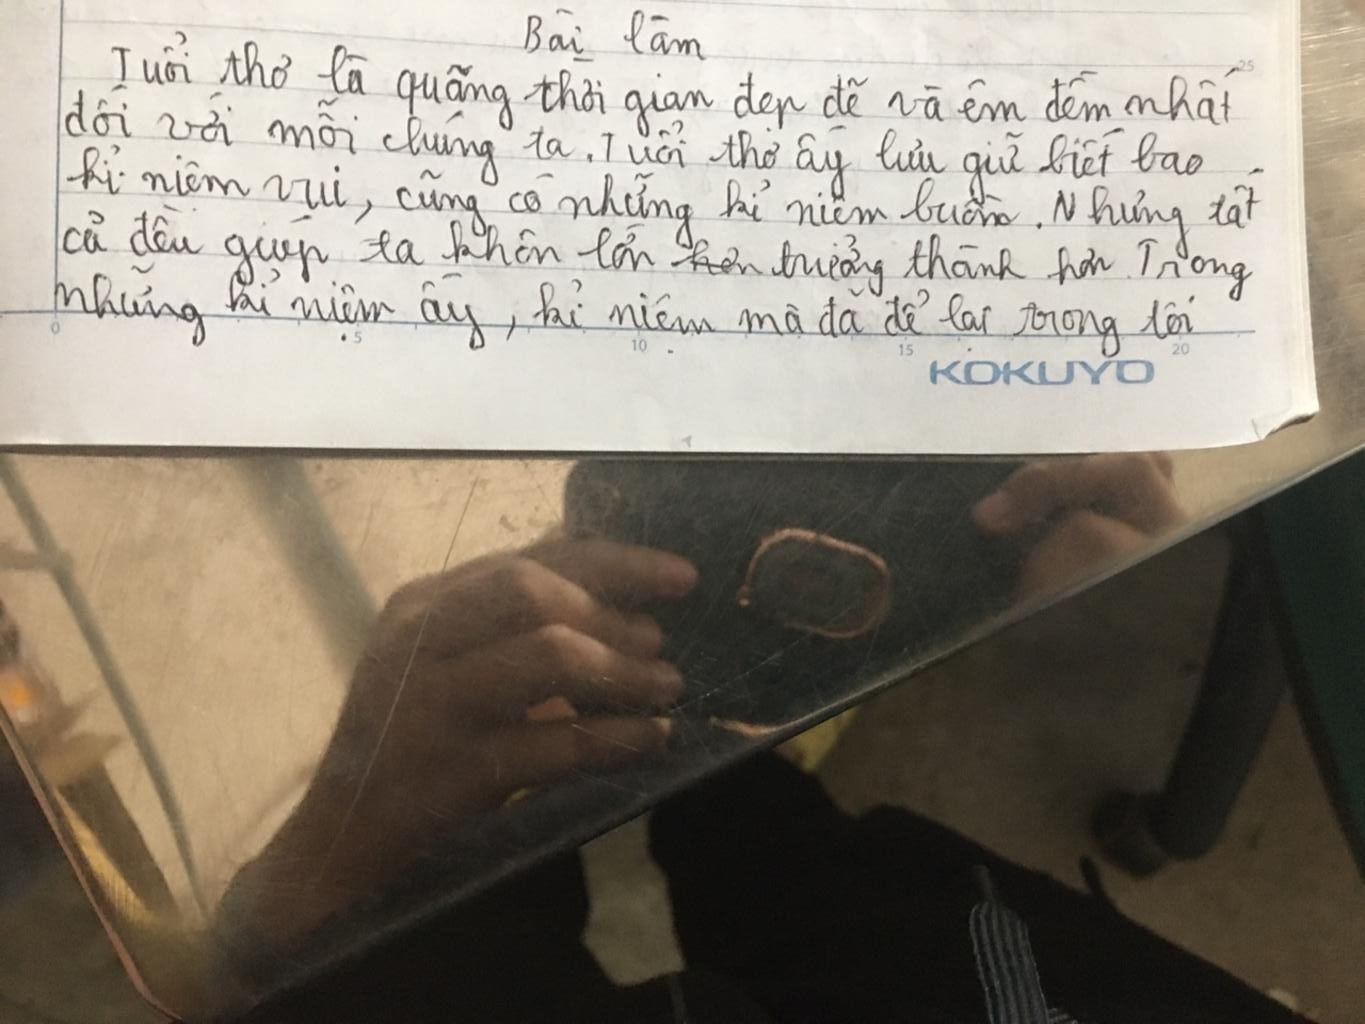 Bài làm
Tuổi thơ là quãng thời gian đẹp đẽ và êm đềm nhất
đối với mỗi chúng ta. Tuổi thơ ấy lưu giữ biết bao
kỉ niệm vui, cũng có những kỉ niệm buồn. Nhưng tất
cả đều giúp ta khôn lớn trưởng thành hơn. Trong
những kỉ niệm ấy, kỉ niệm mà đã để lại trong tôi
0 5 10 15 20 25
KOKUYO